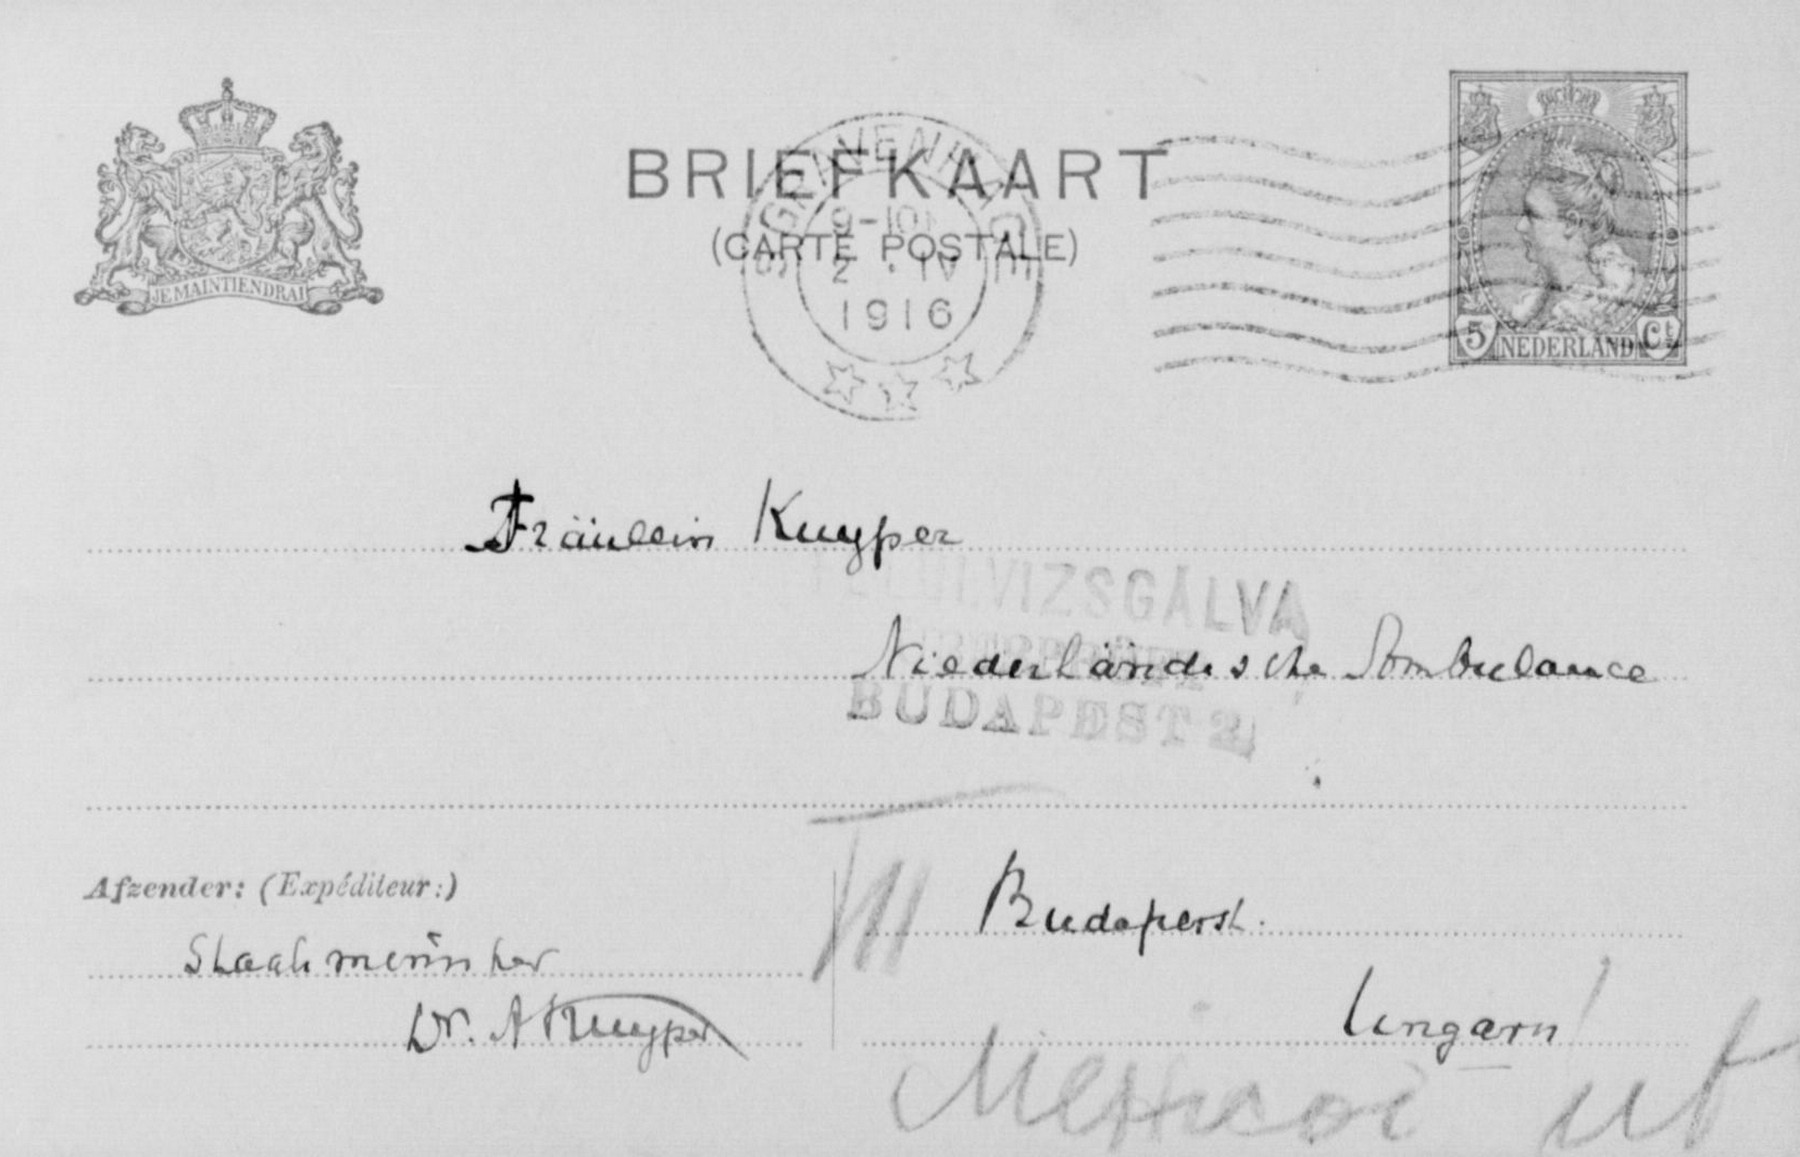 BRIEFKAART
(CARTE POSTALE)
JE MAINTIENDRAI
'S GRAVENHAGE
9-10
2 · IV
1916
5 Ct
NEDERLAND
Fräulein Kuyper
VIZSGÁLVA
Niederländische Ambulance
BUDAPEST 2
Afzender: (Expéditeur:)
III
Budapest.
Staatsminister
Dr. A Kuyper
Ungarn
ut